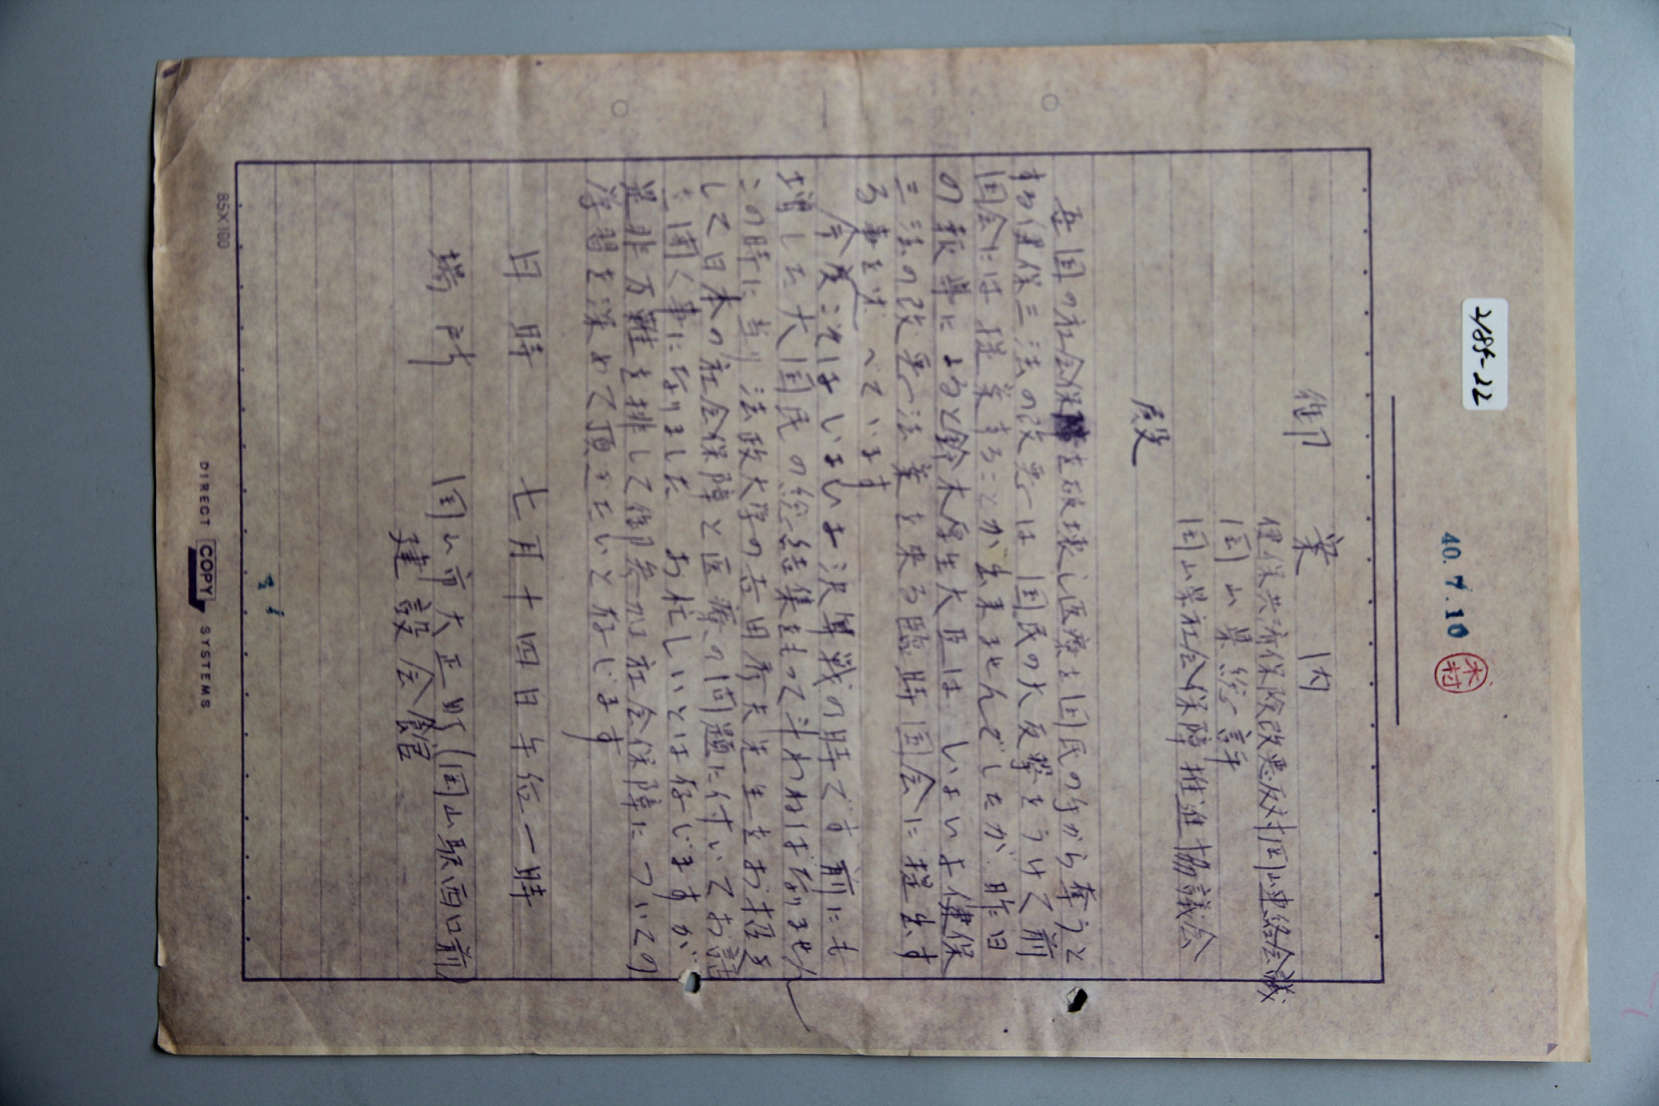 2185-22
40.7.10
木村
御案内
健保共斗保険改悪反対岡山連絡会議
岡山県総評
岡山県社会保障推進協議会
殿
吾国の社会保障を破壊し医療を国民の手から奪うと
する健保三法の改悪は国民の大反撃をうけて前
国会には提案することが出来ませんでしたが、昨日
の報導によると鈴木厚生大臣は、いよいよ健保
三法の改悪法案を来る臨時国会に提出す
る事を述べています
今度こそはいよいよ決戦の時です前にも
増した大国民の総結集をもって斗わねばなりません
この時に当り法政大学の吉田秀夫先生をお招き
して日本の社会保障と医療の問題に付いてお話
を聞く事になりました お忙しいとは存じますが
是非万難を排して御参加社会保障についての
学習を深めて頂きたいと存じます
日時 七月十四日午后一時
場所 岡山市大正町(岡山駅西口前)
建設会館
85X180
DIRECT COPY SYSTEMS